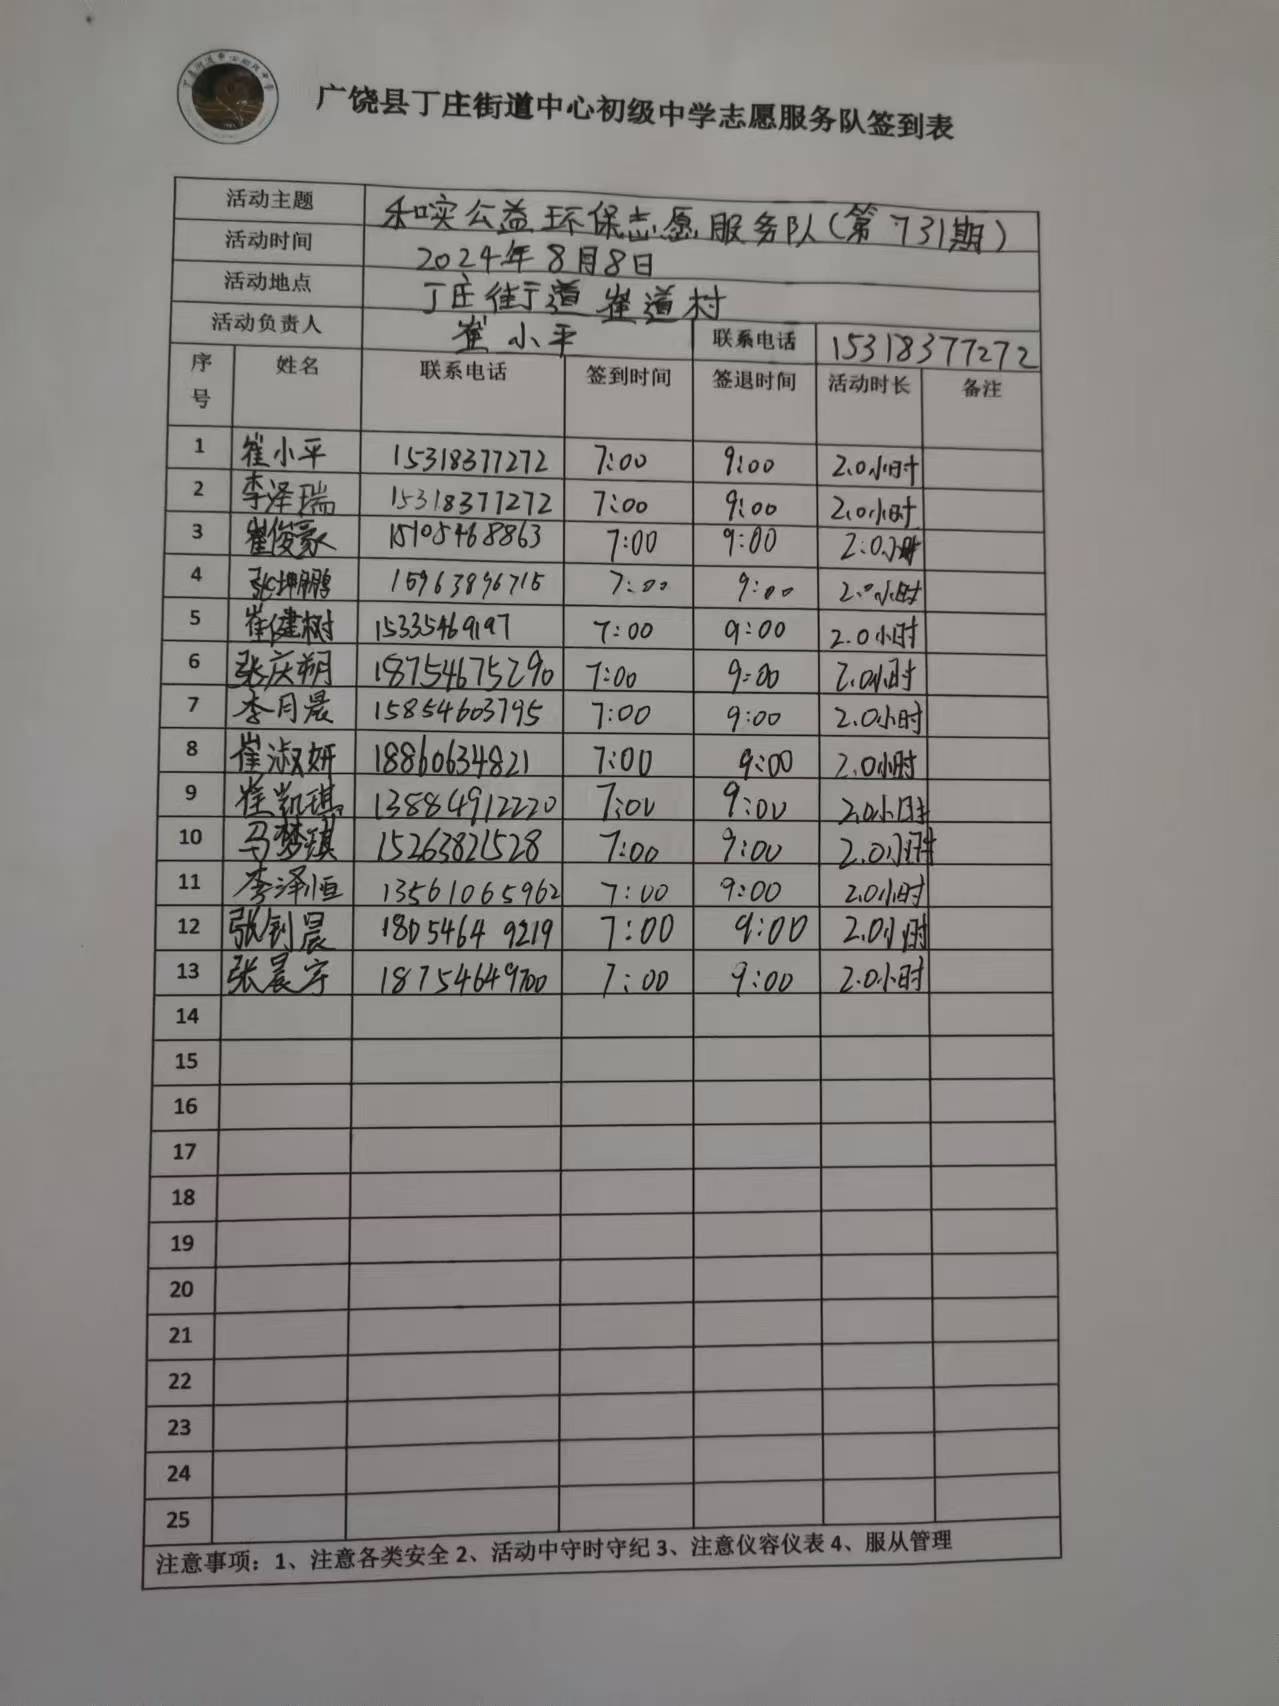 广饶县丁庄街道中心初级中学志愿服务队签到表
活动主题 禾哾公益环保志愿服务队(第731期)
活动时间 2024年8月8日
活动地点 丁庄街道崔道村
活动负责人 崔小平 联系电话 15318377272
序号 姓名 联系电话 签到时间 签退时间 活动时长 备注
1 崔小平 15318377272 7:00 9:00 2.0小时
2 李泽瑞 15318377272 7:00 9:00 2.0小时
3 崔俊豪 15105468863 7:00 9:00 2.0小时
4 张坤鹏 15963896715 7:00 9:00 2.0小时
5 崔健树 15335469197 7:00 9:00 2.0小时
6 张庆朔 18754675290 7:00 9:00 2.0小时
7 李月晨 15854603795 7:00 9:00 2.0小时
8 崔淑妍 18860634821 7:00 9:00 2.0小时
9 崔凯琪 13884912220 7:00 9:00 2.0小时
10 马梦琪 15263821528 7:00 9:00 2.0小时
11 李泽恒 13561065962 7:00 9:00 2.0小时
12 张钊晨 18054649219 7:00 9:00 2.0小时
13 张晨宇 18754649700 7:00 9:00 2.0小时
14
15
16
17
18
19
20
21
22
23
24
25
注意事项：1、注意各类安全 2、活动中守时守纪 3、注意仪容仪表 4、服从管理